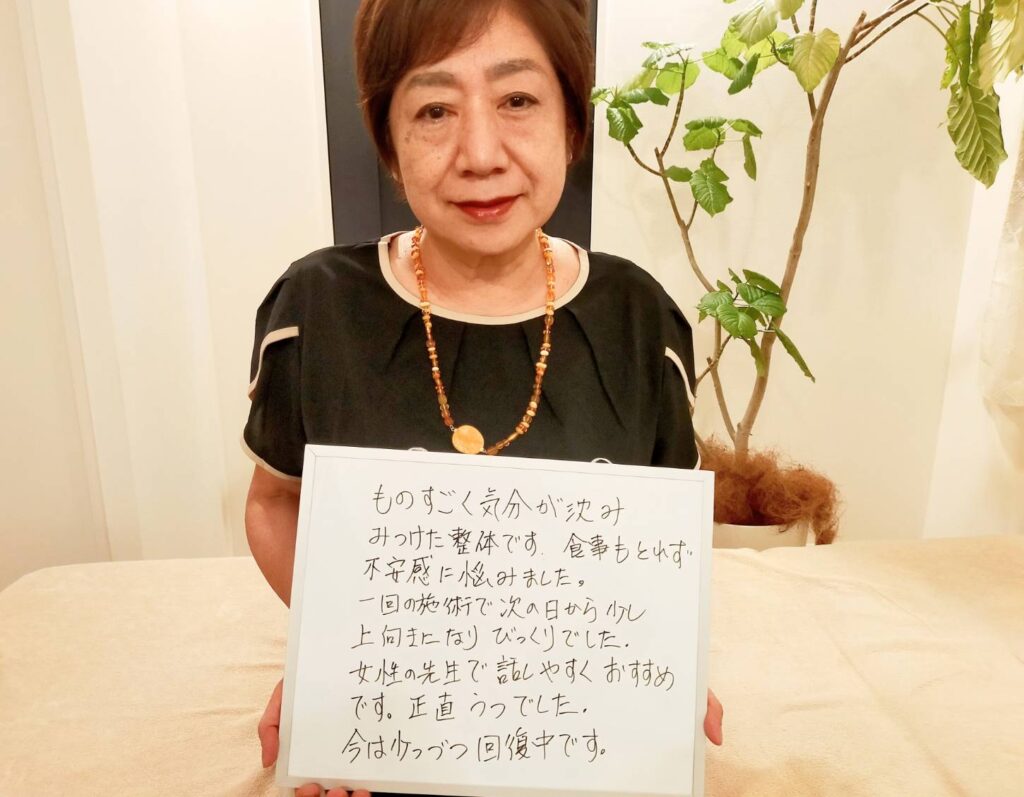 ものすごく気分が沈み
みつけた整体です. 食事もとれず
不安感に悩みました。
一回の施術で次の日から少し
上向きになり びっくりでした.
女性の先生で話しやすく おすすめ
です。正直 うつでした.
今は少っづつ 回復中です。